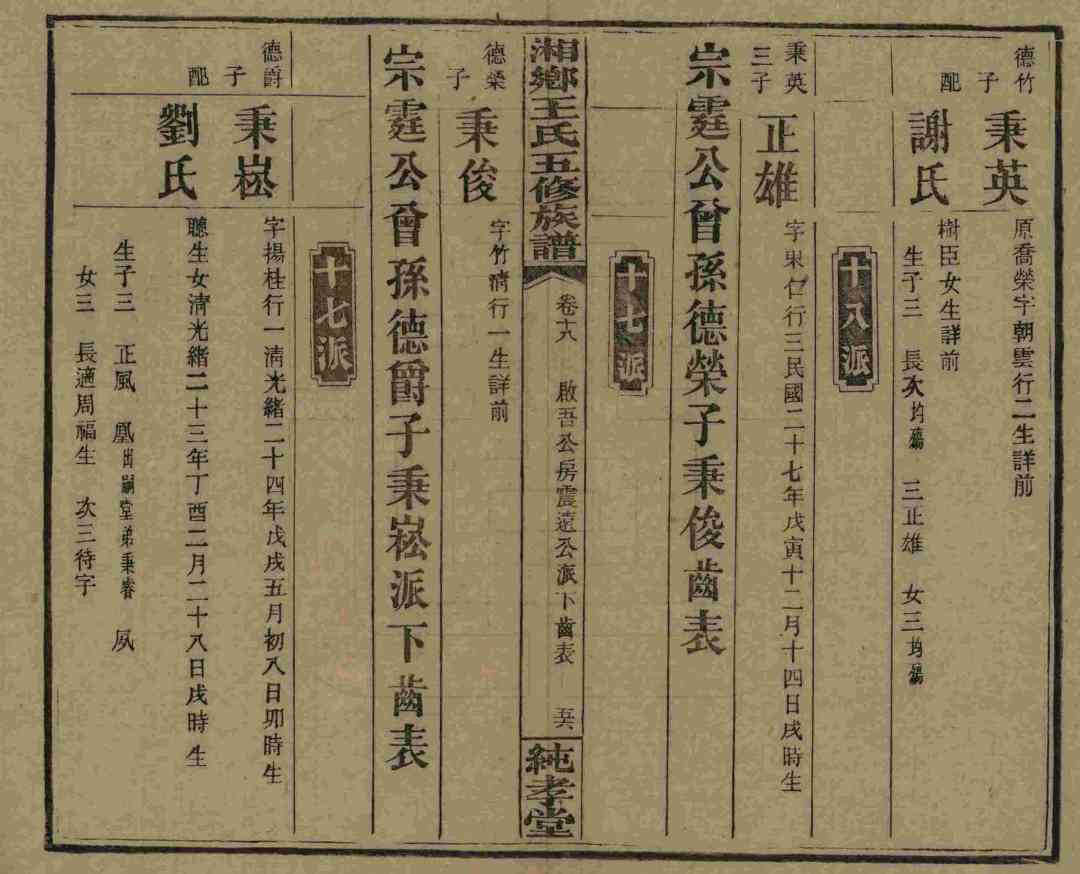 德竹
子
配
秉英
謝氏
原喬榮字朝雲行二生詳前
樹臣女生詳前
生子三 長次均殤 三正雄 女三均殤
十八派
秉英
三子
正雄
字東仁行三民國二十七年戊寅十二月十四日戌時生
宗霆公曾孫德榮子秉俊齒表
十七派
湘鄉王氏五修族譜
卷十八
啟吾公房震遠公派下齒表
純孝堂
德榮
子
秉俊
字竹清行一生詳前
宗霆公曾孫德爵子秉崧派下齒表
十七派
德爵
子
配
秉崧
劉氏
字揚桂行一清光緒二十四年戊戌五月初八日卯時生
聰生女清光緒二十三年丁酉二月二十八日戌時生
生子三 正風 凰出嗣堂弟秉睿 夙
女三 長適周福生 次三待字